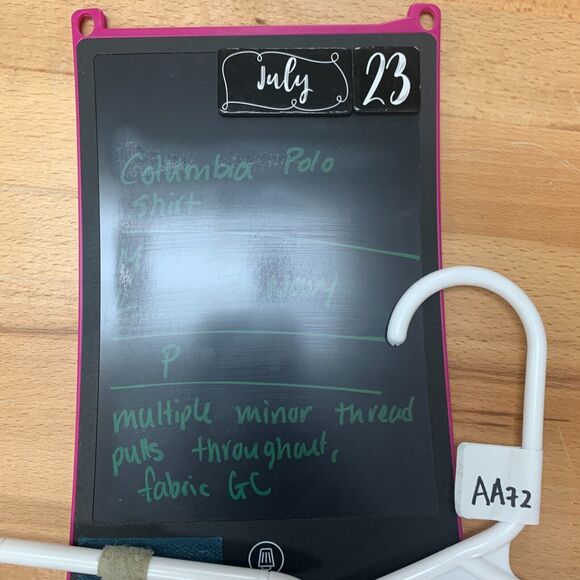 July 23
Columbia Polo
Shirt
M
L Navy
P
multiple minor thread
pulls throughout,
fabric GC
AA72